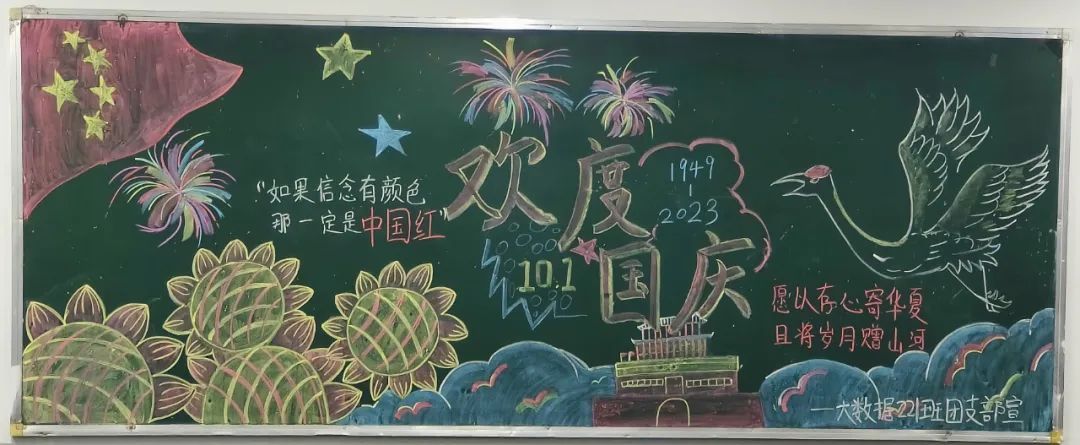 “如果信念有颜色
那一定是中国红”
欢度
国庆
1949
2023
10.1
愿以存心寄华夏
且将岁月赠山河
—大数据221班团支部宣